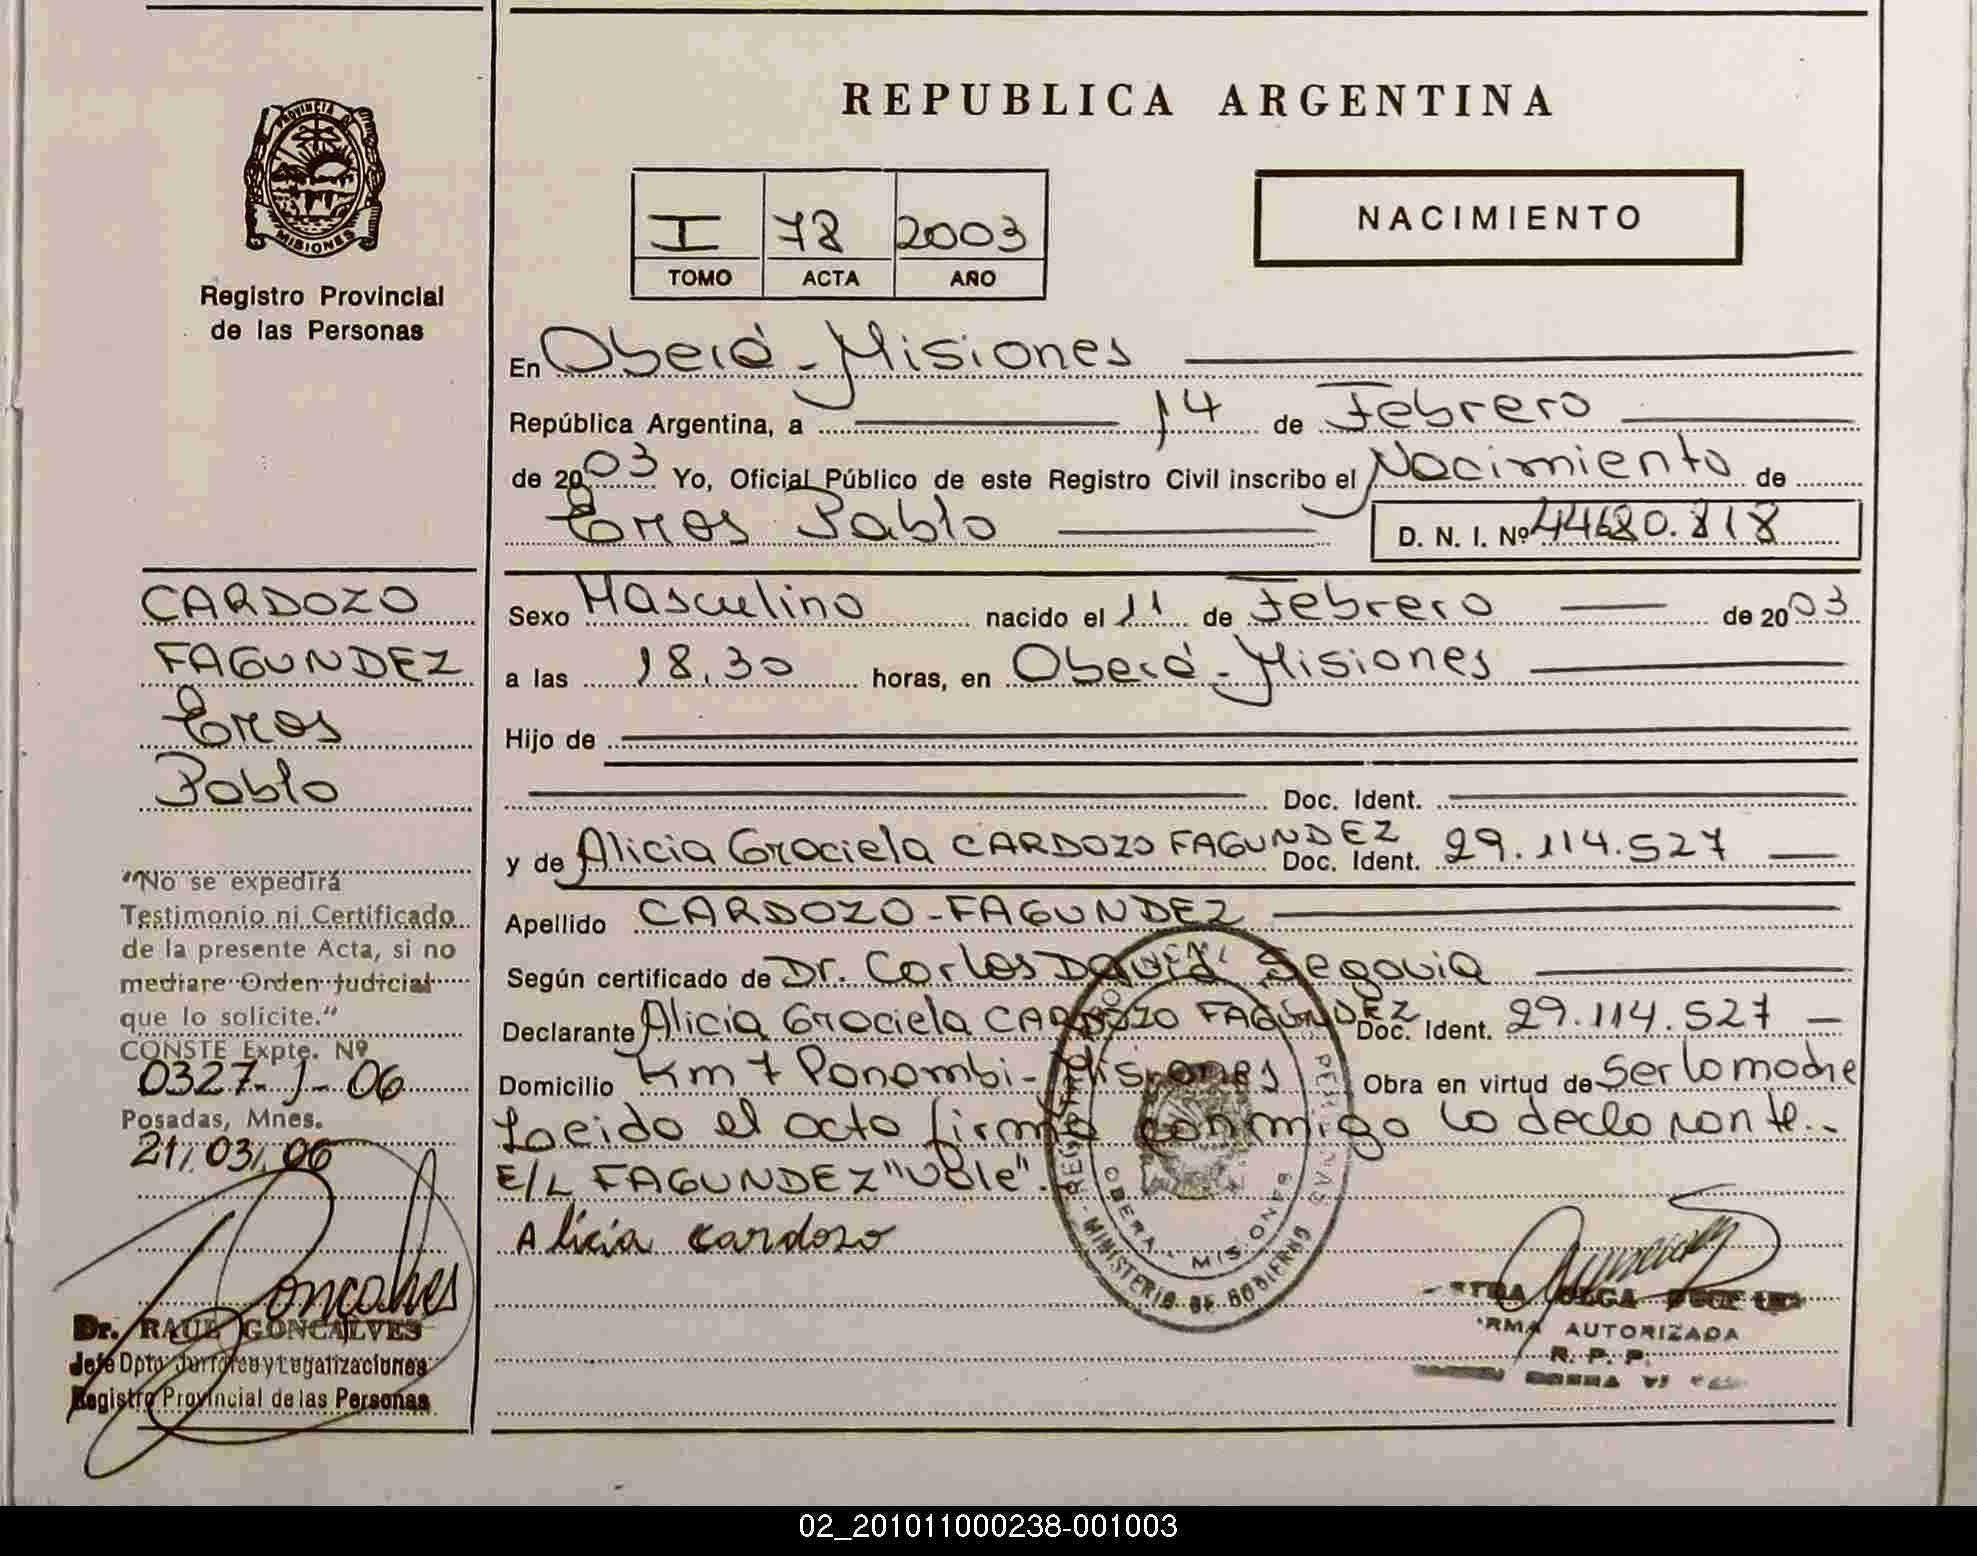 REPUBLICA ARGENTINA
PROVINCIA DE
MISIONES
Registro Provincial
de las Personas
I 78 2003
TOMO ACTA AÑO
NACIMIENTO
En Oberá - Misiones
República Argentina, a 14 de Febrero
de 2003 Yo, Oficial Público de este Registro Civil inscribo el Nacimiento de
Eros Pablo D. N. I. Nº 44680.818
Sexo Masculino nacido el 11 de Febrero de 2003
a las 18,30 horas, en Oberá - Misiones
Hijo de
Doc. Ident.
y de Alicia Graciela CARDOZO FAGUNDEZ Doc. Ident. 29.114.527
Apellido CARDOZO - FAGUNDEZ
Según certificado de Dr. Carlos David Segovia
Declarante Alicia Graciela CARDOZO FAGUNDEZ Doc. Ident. 29.114.527
Domicilio Km 7 Panambi - Misiones Obra en virtud de Ser la madre
Leido el acta firma conmigo la declarante..
E/L FAGUNDEZ "Vale".
Alicia cardozo
CARDOZO
FAGUNDEZ
Eros
Pablo
"No se expedirá
Testimonio ni Certificado
de la presente Acta, si no
mediare Orden Judicial
que lo solicite."
CONSTE Expte. Nº
0327-J-06
Posadas, Mnes.
21/03/06
Gonçalves
Dr. RAUL GONÇALVES
Jefe Dpto. Jurídico y Legalizaciones
Registro Provincial de las Personas
MINISTERIO DE GOBIERNO
OBERA - MISIONES
OLGA
FIRMA AUTORIZADA
R. P. P.
02_201011000238-001003